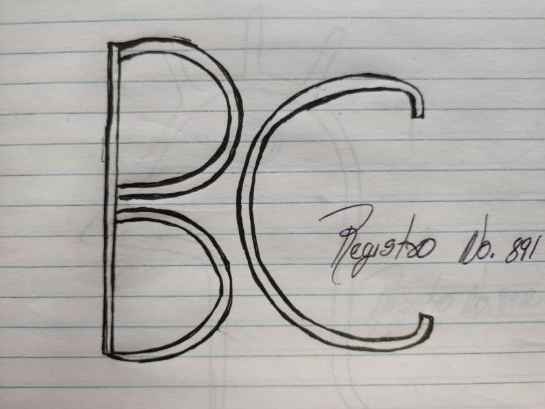 BC
Registro No. 891